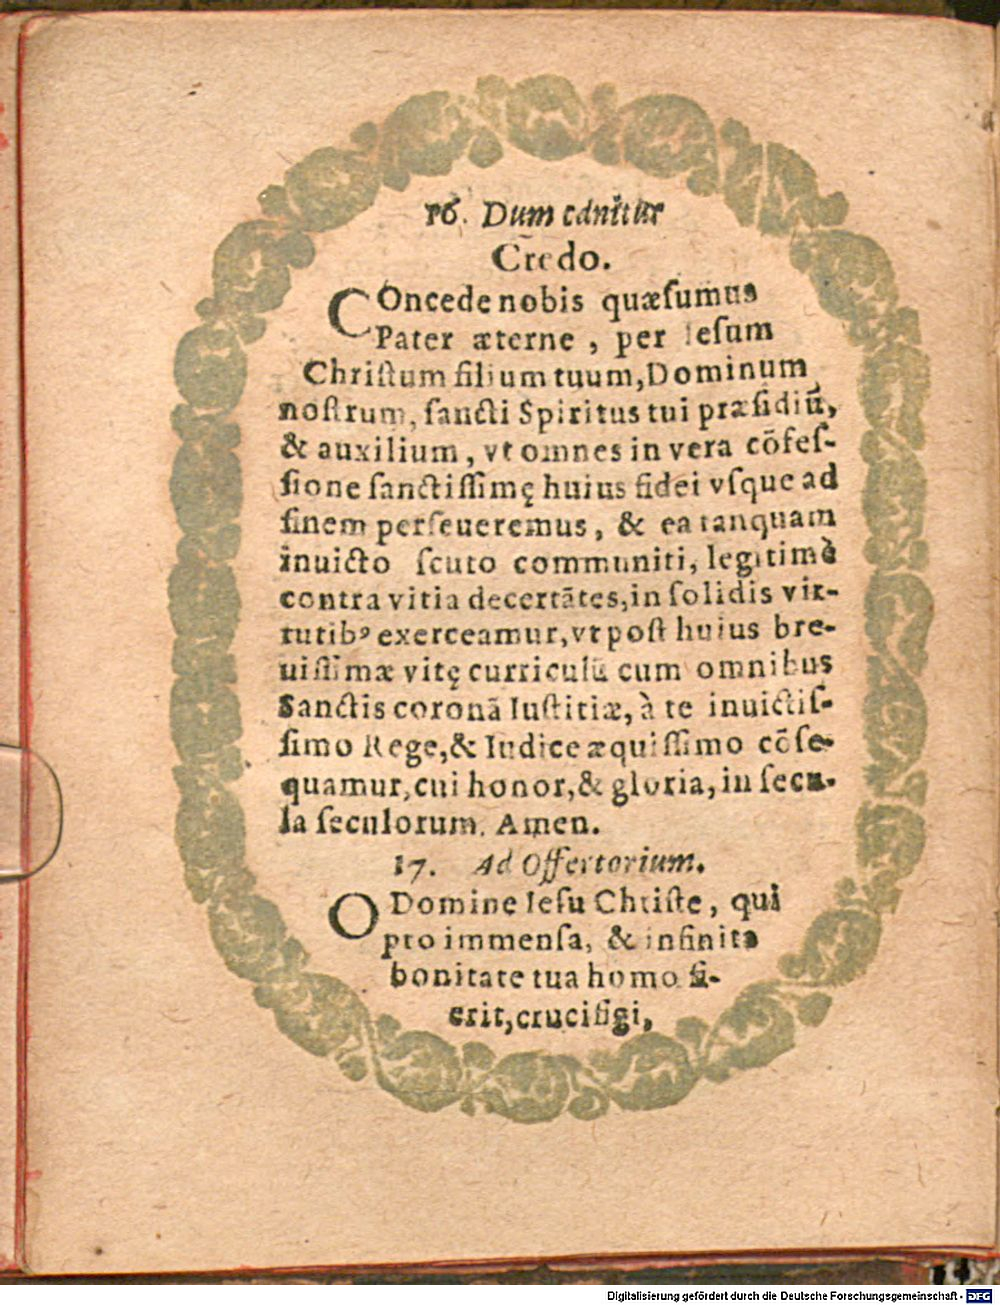 16. Dum canitur
Credo.
COncede nobis quæſumus
Pater æterne, per Ieſum
Chriſtum filium tuum, Dominum
noſtrum, ſancti Spiritus tui præſidiū,
& auxilium, vt omnes in vera cōfeſ-
ſione ſanctiſſimę huius fidei vſque ad
finem perſeueremus, & ea tanquam
inuicto ſcuto communiti, legitimè
contra vitia decertātes, in ſolidis vir-
tutibꝰ exerceamur, vt poſt huius bre-
uiſſimæ vitę curriculū cum omnibus
Sanctis coronā Iuſtitiæ, à te inuictiſ-
ſimo Rege, & Iudice æquiſſimo cōſe-
quamur, cui honor, & gloria, in ſecu-
la ſeculorum. Amen.
17. Ad Offertorium.
O Domine Ieſu Chriſte, qui
pro immenſa, & infinita
bonitate tua homo fi-
erit, crucifigi,
Digitalisierung gefördert durch die Deutsche Forschungsgemeinschaft - DFG